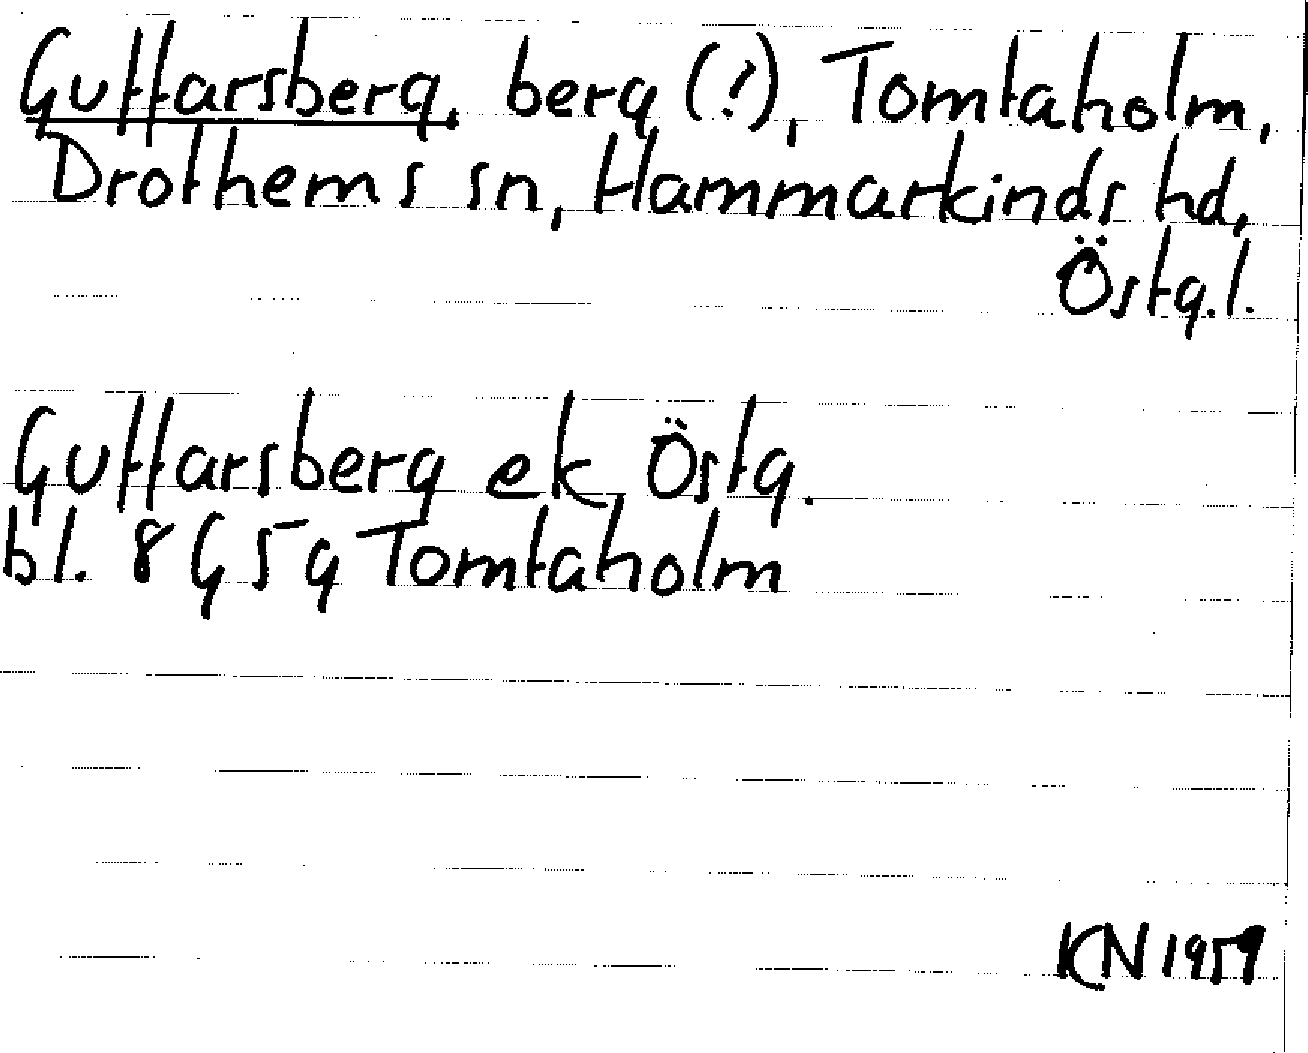 Guttarsberg, berg (?), Tomtaholm,
Drothems sn, Hammarkinds hd,
Östg.l.
Guttarsberg ek Östg.
bl. 8 G 5 g Tomtaholm
KN 1959